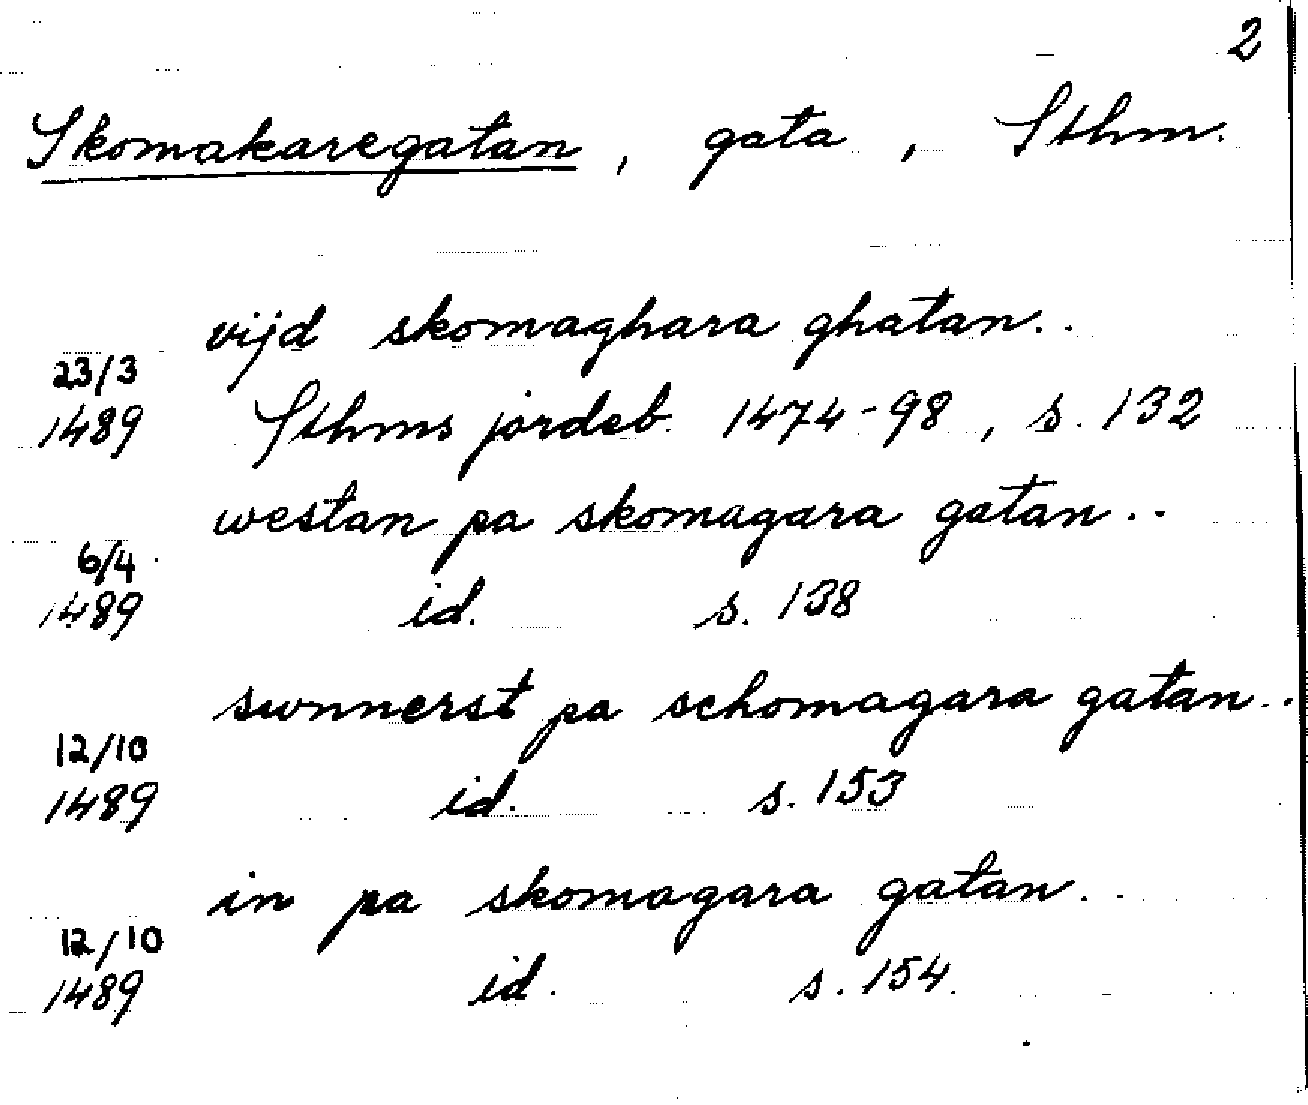 2
Skomakaregatan, gata, Sthm.
vijd skomaghara ghatan..
23/3
1489 Sthms jordeb. 1474-98, s. 132
westan pa skomagara gatan..
6/4
1489 id. s. 138
swnnerst pa schomagara gatan..
12/10
1489 id. s. 153
in pa skomagara gatan..
12/10
1489 id. s. 154